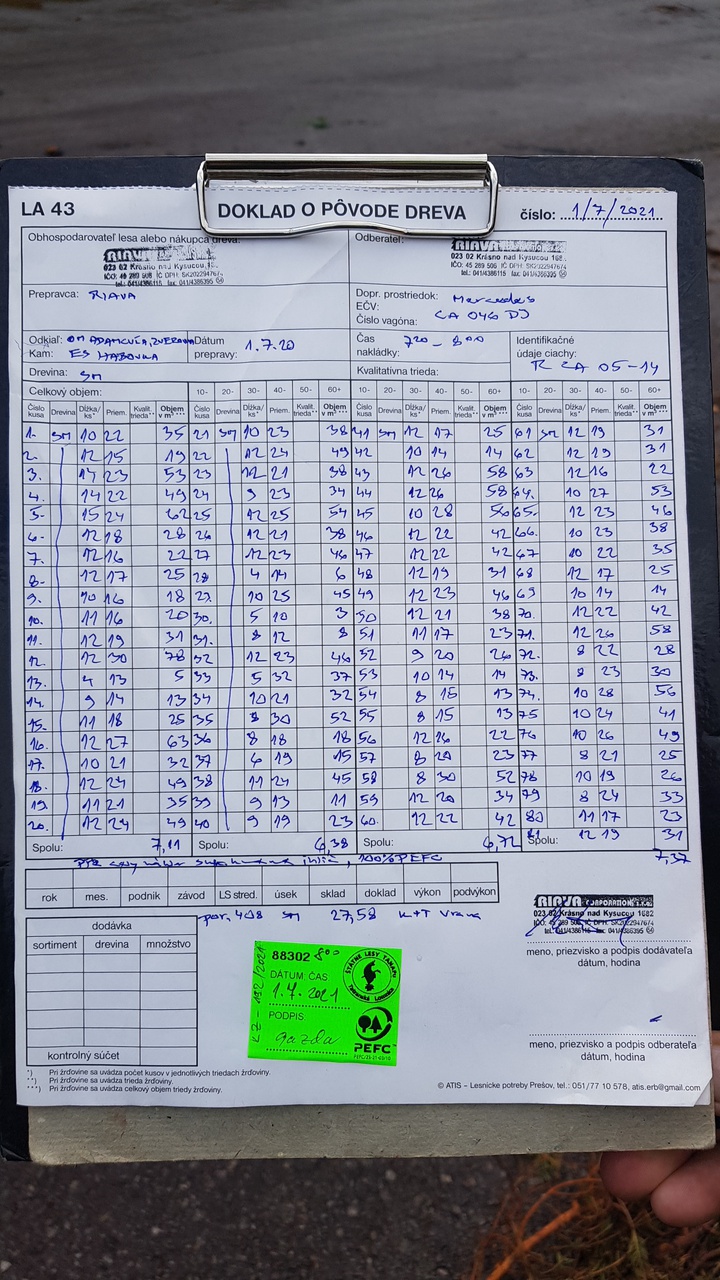 LA 43
DOKLAD O PÔVODE DREVA
číslo: 1/7/2021
Obhospodarovateľ lesa alebo nákupca dreva:
RIAVA
023 02 Krásno nad Kysucou
Odberateľ:
RIAVA
023 02 Krásno nad Kysucou
Prepravca: RIAVA
Dopr. prostriedok: Mercedes
EČV:
Číslo vagóna: CA 046 DJ
Odkiaľ:
Kam: ES HABOVKA
Dátum
prepravy: 1.7.20
Čas 7 20 - 8 00
nakládky:
Identifikačné
údaje ciachy:
R CA 05-14
Drevina: SM
Kvalitatívna trieda:
Celkový objem: 10- 20- 30- 40- 50- 60+ 10- 20- 30- 40- 50- 60+
Číslo kusa Drevina Dĺžka/ks* Priem. Kvalit. trieda** Objem v m³ *** Číslo kusa Drevina Dĺžka/ks* Priem. Kvalit. trieda** Objem v m³ *** Číslo kusa Drevina Dĺžka/ks* Priem. Kvalit. trieda** Objem v m³ *** Číslo kusa Drevina Dĺžka/ks* Priem. Kvalit. trieda** Objem v m³ ***
1. SM 10 22 35 21 SM 10 23 38 41 SM 12 17 25 61 SM 12 19 31
2. 12 15 19 22 12 24 49 42 10 14 14 62 12 19 31
3. 14 23 53 23 12 21 38 43 12 26 58 63 12 16 22
4. 14 22 49 24 9 23 34 44 12 26 58 64. 10 27 53
5. 15 24 62 25 12 25 54 45 10 28 56 65. 12 23 46
6. 12 18 28 26 12 21 38 46 12 22 42 66. 10 23 38
7. 12 16 22 27 12 23 46 47 12 22 42 67 10 22 35
8. 12 17 25 28 4 14 6 48 12 19 31 68 12 17 25
9. 10 16 18 29. 10 25 45 49 12 23 46 69 10 14 14
10. 11 16 20 30. 5 10 3 50 12 21 38 70. 12 22 42
11. 12 19 31 31. 8 12 8 51 11 17 23 71. 12 26 58
12. 12 30 78 32 12 23 46 52 9 20 26 72. 8 22 28
13. 4 13 5 33 5 32 37 53 10 14 14 73. 8 23 30
14. 9 14 13 34 10 21 32 54 8 15 13 74. 10 28 56
15. 11 18 25 35 8 30 52 55 8 15 13 75 10 24 41
16. 12 27 63 36 8 18 18 56 12 16 22 76 10 26 49
17. 10 21 32 37 6 19 15 57 8 20 23 77 8 21 25
18. 12 24 49 38 11 24 45 58 8 30 52 78 10 19 26
19. 11 21 35 39 9 13 11 59 12 20 34 79 8 24 33
20. 12 24 49 40 9 19 23 60. 12 22 42 80 11 17 23
Spolu: 7,11 Spolu: 6,38 Spolu: 6,72 Spolu: 81 12 19 31
7,37
100% PEFC
rok mes. podnik závod LS stred. úsek sklad doklad výkon podvýkon
por. 408 SM 27,58 K+T Vrana
dodávka
sortiment drevina množstvo
kontrolný súčet
88302 800
DÁTUM: ČAS
1.7.2021
PODPIS
gazda
LZ-132/2021
ŠTÁTNE LESY TANAPU
Tatranská Lomnica
PEFC
RIAVA CORPORATION s.r.o.
023 02 Krásno nad Kysucou 1682
meno, priezvisko a podpis dodávateľa
dátum, hodina
meno, priezvisko a podpis odberateľa
dátum, hodina
*) Pri žrďovine sa uvádza počet kusov v jednotlivých triedach žrďoviny.
**) Pri žrďovine sa uvádza trieda žrďoviny.
***) Pri žrďovine sa uvádza celkový objem triedy žrďoviny.
© ATIS – Lesnícke potreby Prešov, tel.: 051/77 10 578, atis.erb@gmail.com